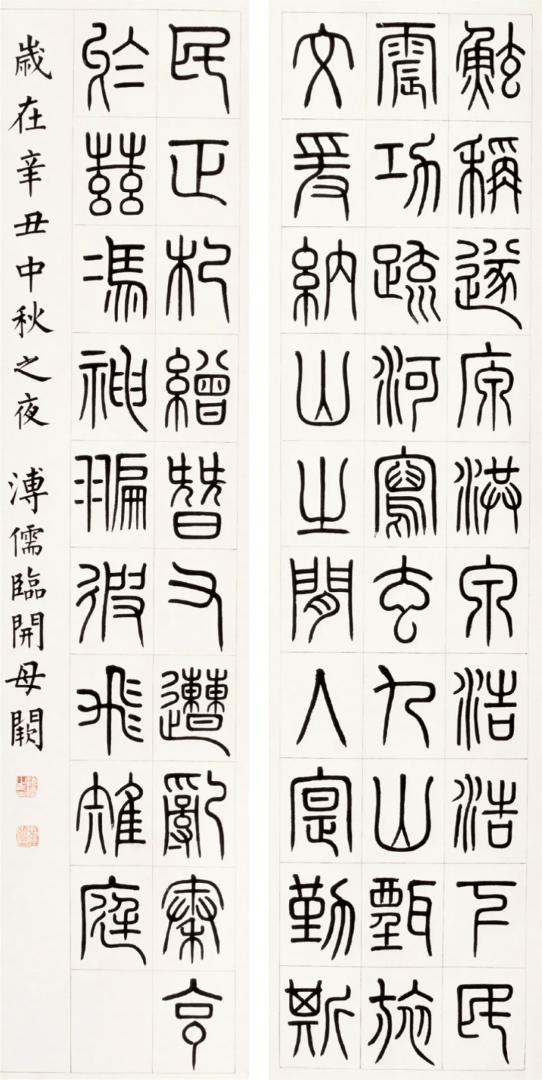 鮌稱遂原洪泉浩浩下民
震功疏河寫玄九山甄旅
文爰納山之間入寔勤斯
民正杞繒替又遭亂秦享
於茲馮神翩彼飛雉庭
歲在辛丑中秋之夜 溥儒臨開母闕